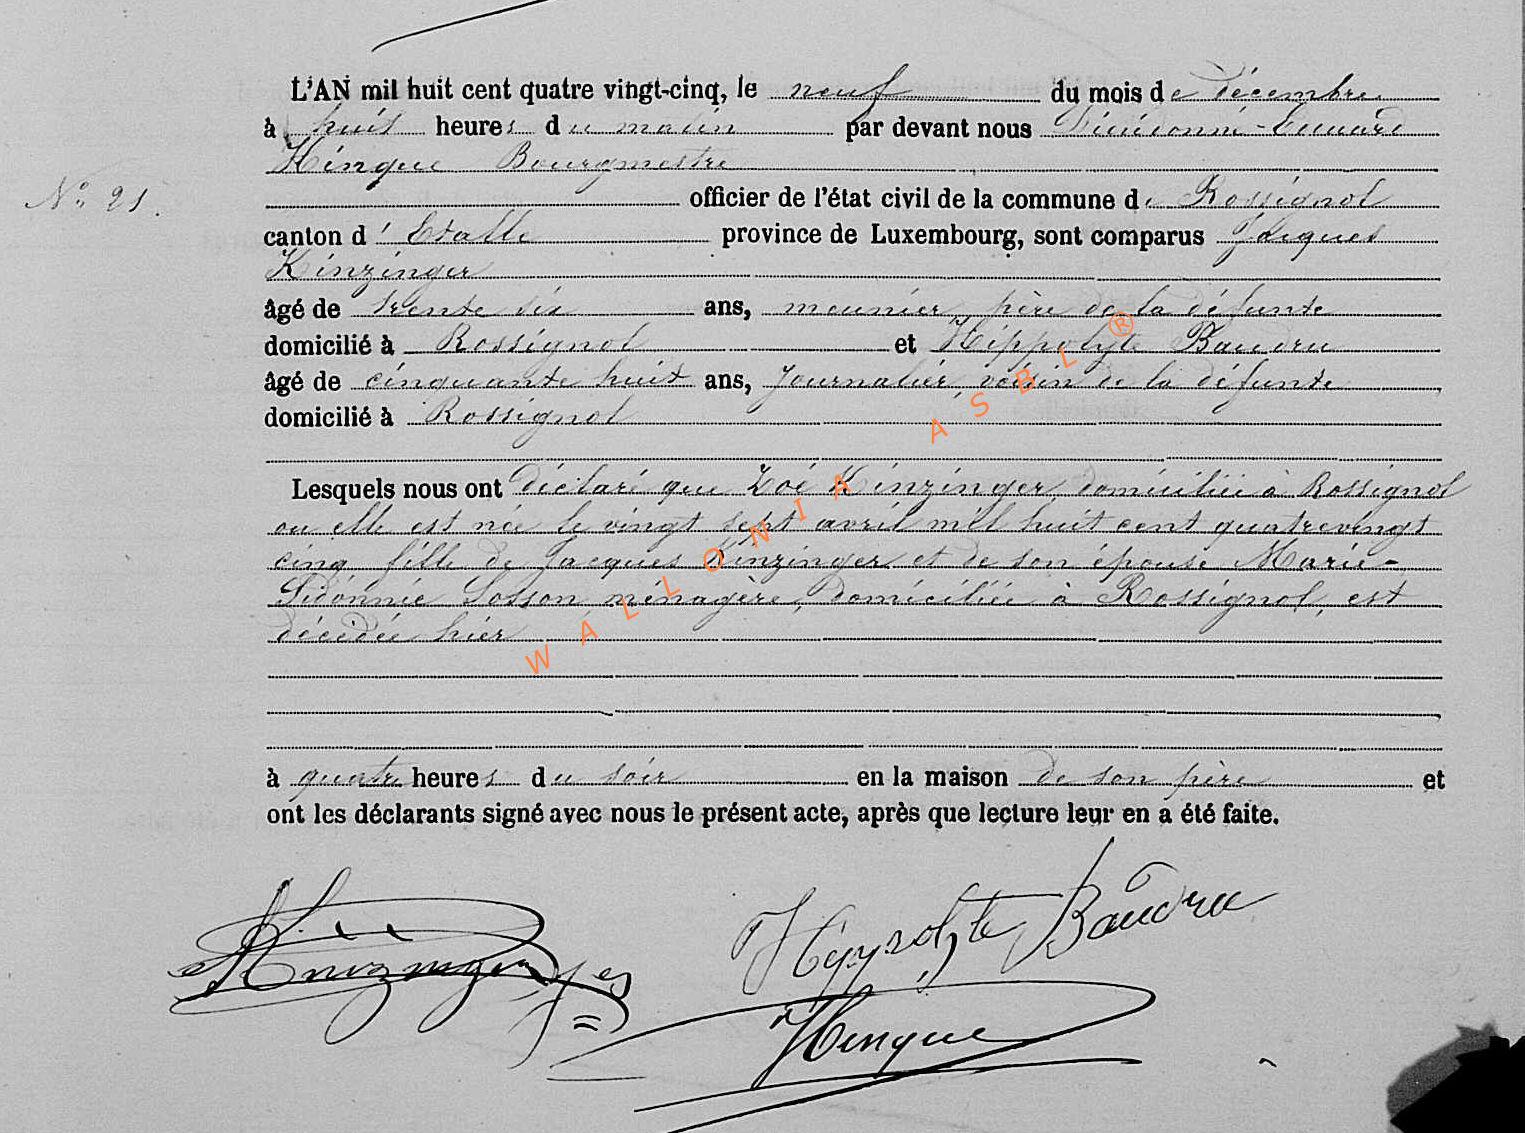 L'AN mil huit cent quatre vingt-cinq, le neuf du mois de décembre
à huit heures du matin par devant nous Dieudonné-Edouard
Hinque Bourgmestre
N° 21.
officier de l'état civil de la commune de Rossignol
canton d'Etalle province de Luxembourg, sont comparus Jacques
Kinzinger
âgé de trente six ans, meunier, père de la défunte
domicilié à Rossignol et Hippolyte Baudru
âgé de cinquante huit ans, Journalier, voisin de la défunte
domicilié à Rossignol
Lesquels nous ont déclaré que Zoé Kinzinger, domiciliée à Rossignol
ou elle est née le vingt sept avril mil huit cent quatrevingt
cinq fille de Jacques Kinzinger et de son épouse Marie-
Sidonnie Sosson, ménagère, domiciliée à Rossignol, est
décédée hier
à quatre heures du soir en la maison de son père et
ont les déclarants signé avec nous le présent acte, après que lecture leur en a été faite.
Kinzinger Hyppolyte Baudru
Hinque
WALLONIA ASBL ®